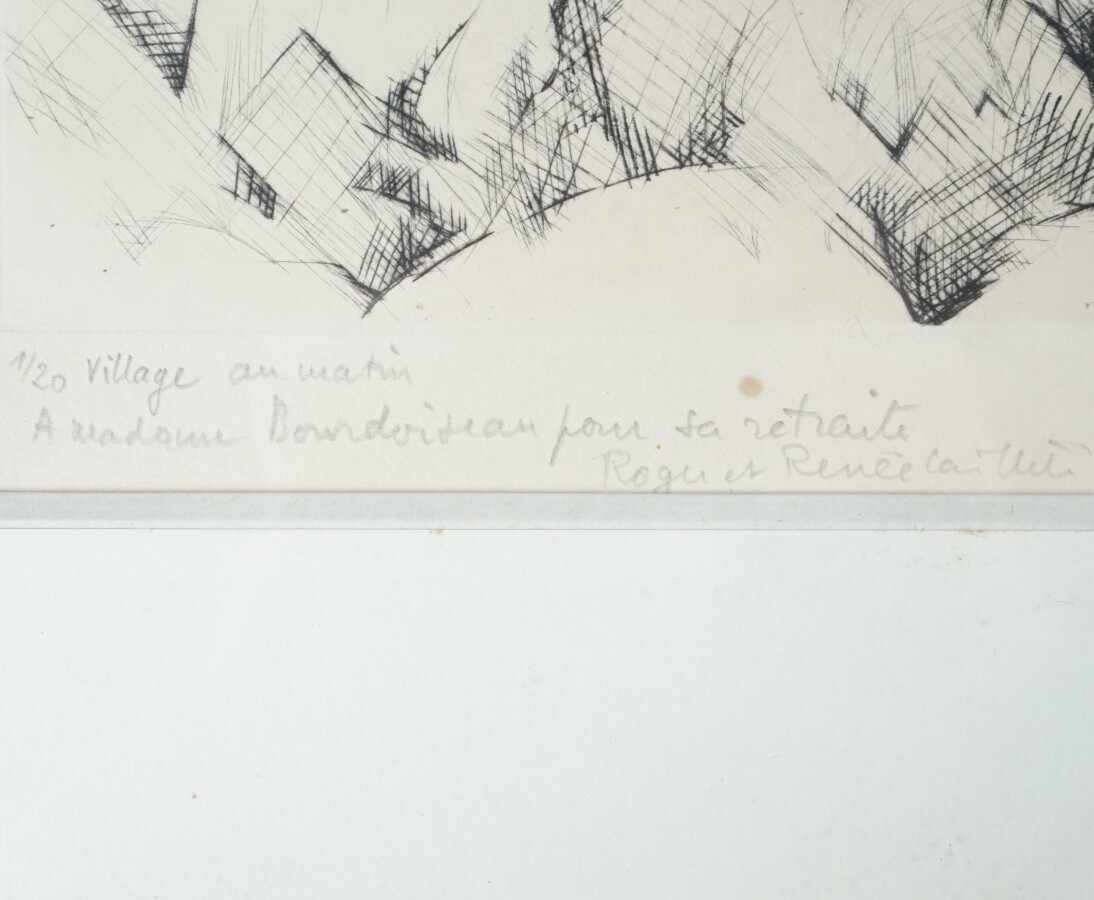 1/20 Village au matin
A madame Bourdoiseau pour sa retraite
Roger et Renée